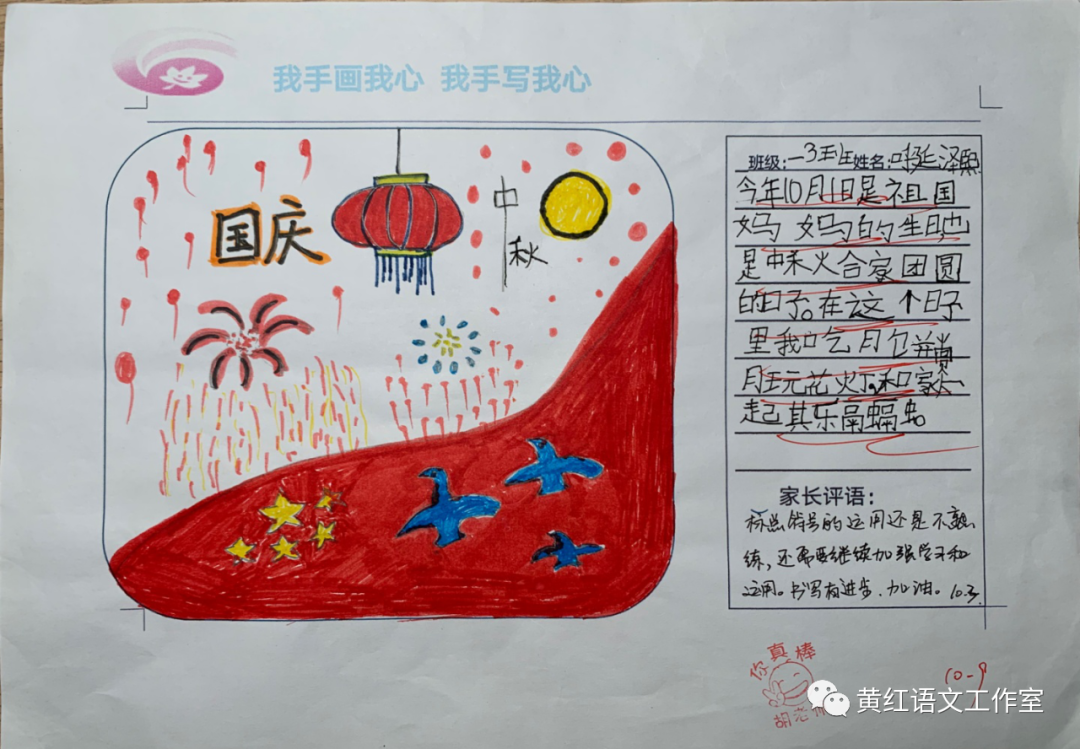 我手画我心 我手写我心
国庆
中秋
班级:一3班 姓名: 泽熙
今年10月1日是祖国
妈妈的生日也
是中秋合家团圆
的日子。在这个日子
里我吃月饼赏
月玩花灯。和家人一
起其乐融融
家长评语:
标点符号的运用还是不熟
练,还需要继续加强学习和
运用。书写有进步,加油。10.3.
你真棒
胡老师
10-9
黄红语文工作室